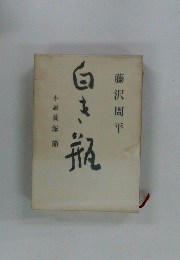 藤沢周平
白き瓶
小説長塚節